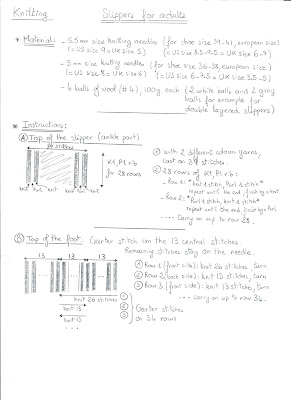 Knitting
Slippers for adults
* Material:
- 5.5mm size knitting needles (for shoe size 39-41, european size)
(= US size 9 = UK size 5) (= US size 8.5-9.5 = UK size 6-7)
- 5 mm size knitting needles (for shoe size 36-38, european size)
(= US size 8 = UK size 6) (= US size 6-7.5 = UK size 3.5-5)
- 4 balls of wool (#4), 100g each (2 white balls and 2 grey
balls for example for
double layered slippers)
* Instructions:
A Top of the slipper (ankle part)
39 stitches
K1, P1 rib
for 28 rows
knit knit knit knit
① with 2 different colours yarns,
cast on 39 stitches.
② 28 rows of K1, P1 rib:
- Row 1: * knit 1 stitch, Purl 1 stitch *
repeat until the end, finish by a knit.
- Row 2: * Purl 1 stitch, knit 1 stitch *
repeat until the end, finish by a purl.
.... Carry on up to row 28.
B Top of the foot: Garter stitch on the 13 central stitches.
Remaining stitches stay on the needle.
13 13 13
knit 26 stitches ①
knit 13 ②
knit 13 ③
...
Garter stitches
on 34 rows
① Row 1 (front side): knit 26 stitches, turn
② Row 2 (back side): knit 13 stitches, turn
③ Row 3 (front side): knit 13 stitches, turn
.... Carry on up to row 34.